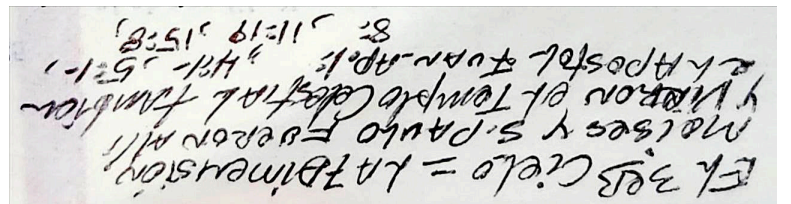 EL 3eR Cielo = LA 7 Dimensión,
Moises y S. PAULO FUERON Alli
y VIERON EL Templo Celestial tAmbien
EL APostol JuAn. Ap. 1: , 4:1- , 5:1-,
8: , 11:19 , 15:8,